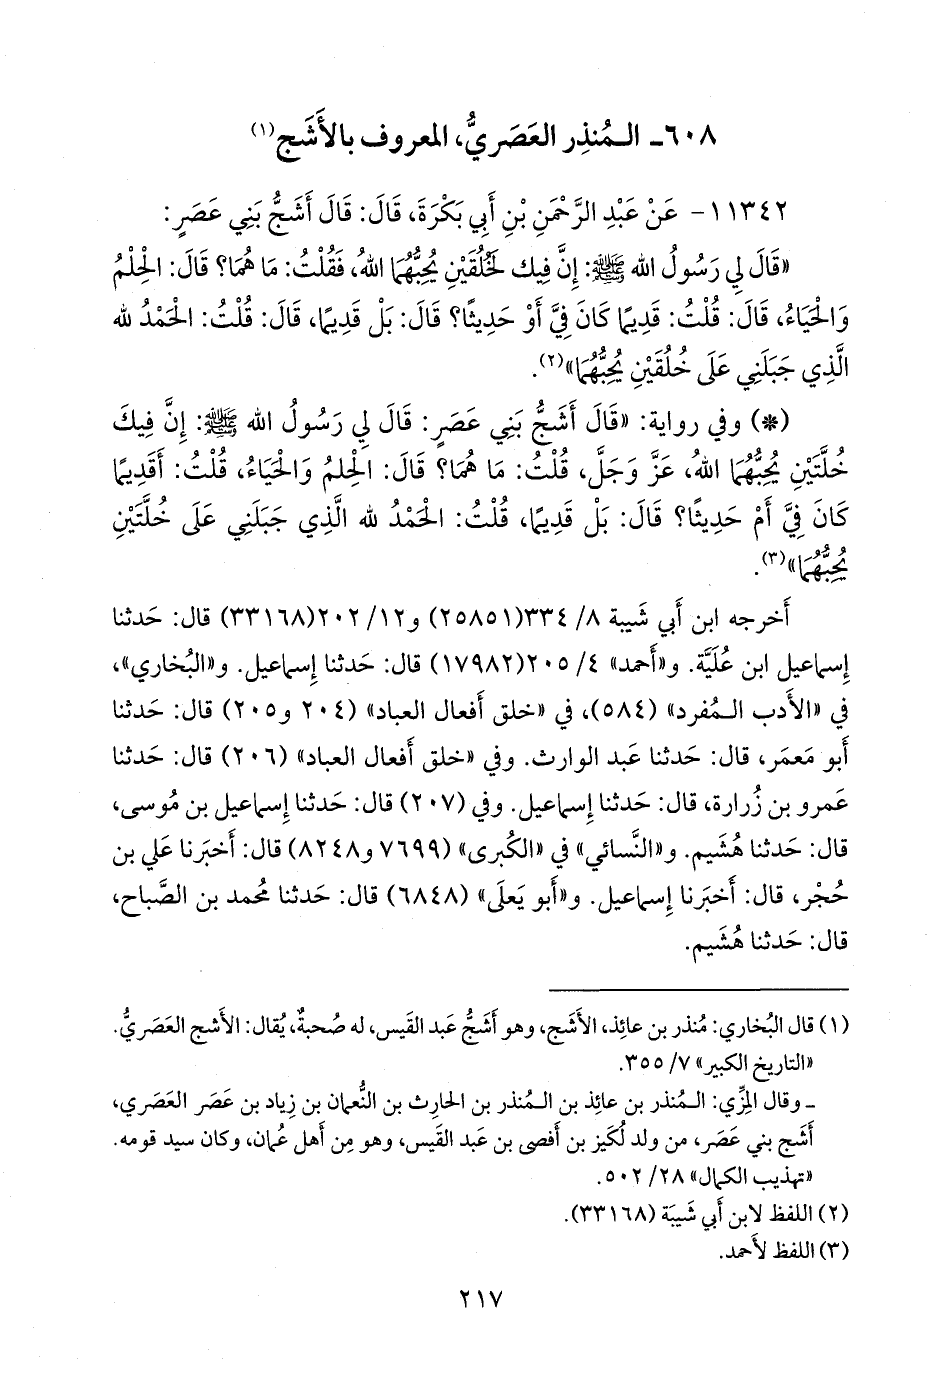 ٦٠٨ـ الـمُنذِر العَصَرِيُّ، المعروف بالأَشَج(١)
١١٣٤٢- عَنْ عَبْدِ الرَّحْمَنِ بْنِ أَبِي بَكْرَةَ، قَالَ: قَالَ أَشَجُّ بَنِي عَصَرٍ:
«قَالَ لِي رَسُولُ الله ﷺ: إِنَّ فِيكَ لَخُلُقَيْنِ يُحِبُّهُمَا اللهُ، فَقُلْتُ: مَا هُمَا؟ قَالَ: الحِلْمُ
وَالحَيَاءُ، قَالَ: قُلْتُ: قَدِيمًا كَانَ فِيَّ أَوْ حَدِيثًا؟ قَالَ: بَلْ قَدِيمًا، قَالَ: قُلْتُ: الحَمْدُ لله
الَّذِي جَبَلَنِي عَلَى خُلُقَيْنِ يُحِبُّهُمَا»(٢).
(*) وفي رواية: «قَالَ أَشَجُّ بَنِي عَصَرٍ: قَالَ لِي رَسُولُ الله ﷺ: إِنَّ فِيكَ
خُلَّتَيْنِ يُحِبُّهُمَا اللهُ، عَزَّ وَجَلَّ، قُلْتُ: مَا هُمَا؟ قَالَ: الحِلمُ وَالحَيَاءُ، قُلْتُ: أَقَدِيمًا
كَانَ فِيَّ أَمْ حَدِيثًا؟ قَالَ: بَلْ قَدِيمًا، قُلْتُ: الحَمْدُ لله الَّذِي جَبَلَنِي عَلَى خُلَّتَيْنِ
يُحِبُّهُمَا»(٣).
أَخرجه ابن أَبي شَيبة ٨/ ٣٣٤(٢٥٨٥١) و١٢/ ٢٠٢(٣٣١٦٨) قال: حَدثنا
إِسماعيل ابن عُلَيَّة. و«أَحمد» ٤/ ٢٠٥(١٧٩٨٢) قال: حَدثنا إِسماعيل. و«البُخاري»،
في «الأَدب الـمُفرد» (٥٨٤)، في «خلق أَفعال العباد» (٢٠٤ و٢٠٥) قال: حَدثنا
أَبو مَعمَر، قال: حَدثنا عَبد الوارث. وفي «خلق أَفعال العباد» (٢٠٦) قال: حَدثنا
عَمرو بن زُرارة، قال: حَدثنا إِسماعيل. وفي (٢٠٧) قال: حَدثنا إِسماعيل بن مُوسى،
قال: حَدثنا هُشَيم. و«النَّسائي» في «الكُبرى» (٧٦٩٩ و٨٢٤٨) قال: أَخبَرنا علي بن
حُجْر، قال: أَخبَرنا إِسماعيل. و«أَبو يَعلَى» (٦٨٤٨) قال: حَدثنا محُمد بن الصَّباح،
قال: حَدثنا هُشَيم.
(١) قال البُخاري: مُنذر بن عائِذ، الأَشَج، وهو أَشَجُّ عَبد القَيس، له صُحبةٌ، يُقال: الأَشج العَصَريُّ.
«التاريخ الكبير» ٧/ ٣٥٥.
ـ وقال المِزِّي: الـمُنذر بن عائِذ بن الـمُنذر بن الحارِث بن النُّعمان بن زِياد بن عَصَر العَصَري،
أَشَج بني عَصَر، من ولد لُكَيز بن أَفصى بن عَبد القَيس، وهو مِن أَهل عُمان، وكان سيد قومه.
«تهذيب الكمال» ٢٨/ ٥٠٢.
(٢) اللفظ لابن أَبي شَيبَة (٣٣١٦٨).
(٣) اللفظ لأَحمد.
٢١٧